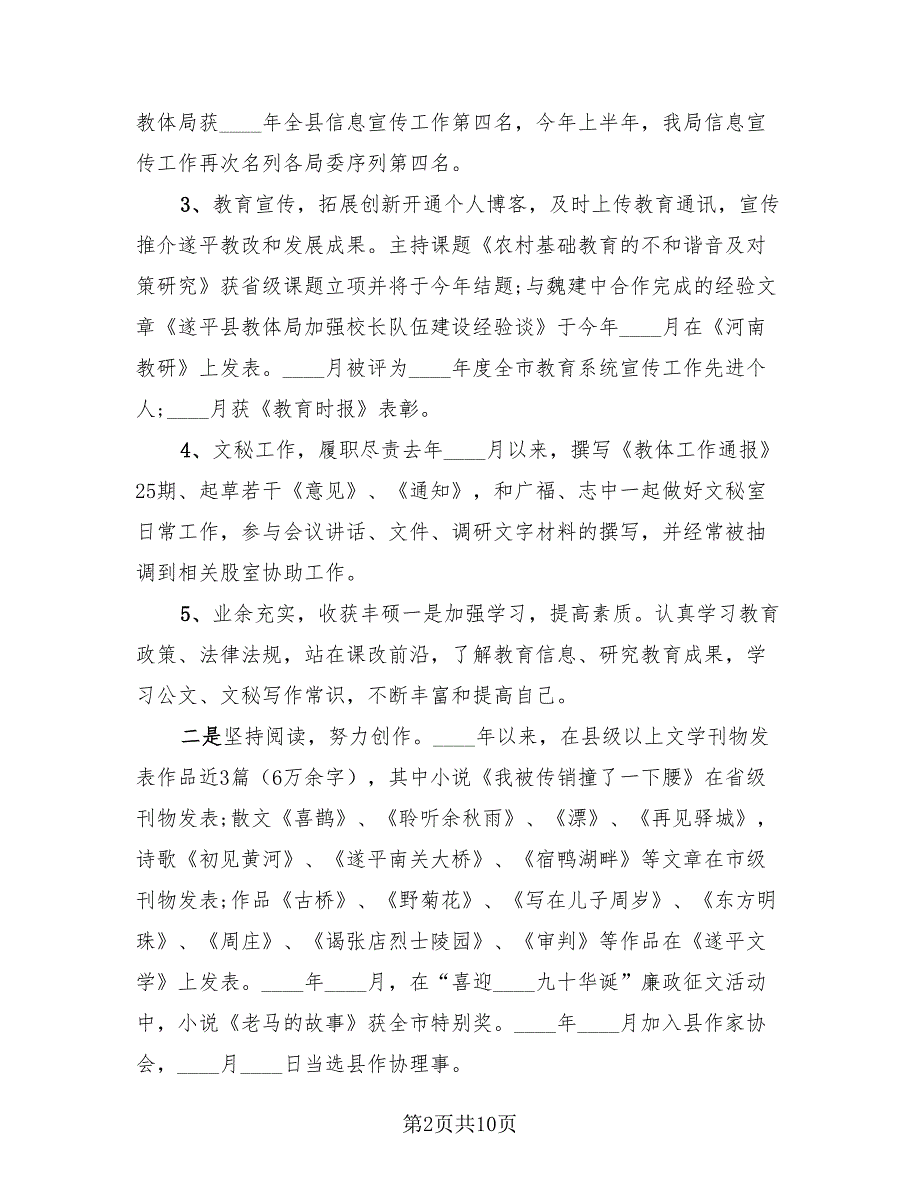 教体局获____年全县信息宣传工作第四名，今年上半年，我局信息宣
传工作再次名列各局委序列第四名。
3、教育宣传，拓展创新开通个人博客，及时上传教育通讯，宣传
推介遂平教改和发展成果。主持课题《农村基础教育的不和谐音及对
策研究》获省级课题立项并将于今年结题;与魏建中合作完成的经验文
章《遂平县教体局加强校长队伍建设经验谈》于今年____月在《河南
教研》上发表。____月被评为____年度全市教育系统宣传工作先进个
人;____月获《教育时报》表彰。
4、文秘工作，履职尽责去年____月以来，撰写《教体工作通报》
25期、起草若干《意见》、《通知》，和广福、志中一起做好文秘室
日常工作，参与会议讲话、文件、调研文字材料的撰写，并经常被抽
调到相关股室协助工作。
5、业余充实，收获丰硕一是加强学习，提高素质。认真学习教育
政策、法律法规，站在课改前沿，了解教育信息、研究教育成果，学
习公文、文秘写作常识，不断丰富和提高自己。
二是坚持阅读，努力创作。____年以来，在县级以上文学刊物发
表作品近3篇（6万余字），其中小说《我被传销撞了一下腰》在省级
刊物发表;散文《喜鹊》、《聆听余秋雨》、《漂》、《再见驿城》，
诗歌《初见黄河》、《遂平南关大桥》、《宿鸭湖畔》等文章在市级
刊物发表;作品《古桥》、《野菊花》、《写在儿子周岁》、《东方明
珠》、《周庄》、《谒张店烈士陵园》、《审判》等作品在《遂平文
学》上发表。____年____月，在“喜迎____九十华诞”廉政征文活动
中，小说《老马的故事》获全市特别奖。____年____月加入县作家协
会，____月____日当选县作协理事。
第2页共10页